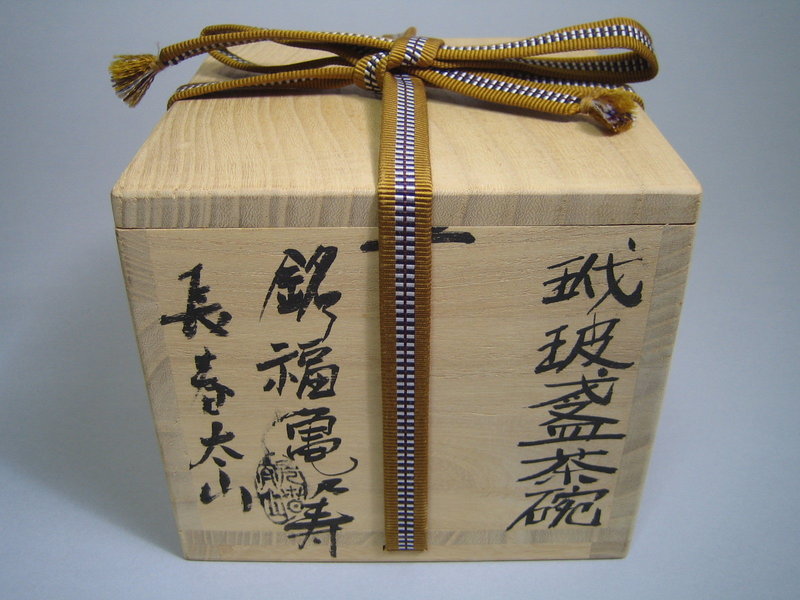 玳玻盞茶碗
銘福亀寿
長春太山